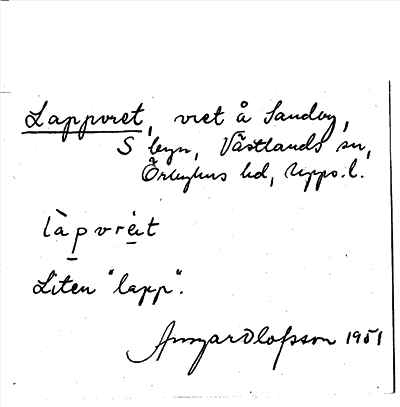 Lappvret, vret å Sandby,
S byn, Västlands sn,
Örbyhus hd, Upps. l.
làpvrèit
Liten "lapp".
Ansgar Olofsson 1951